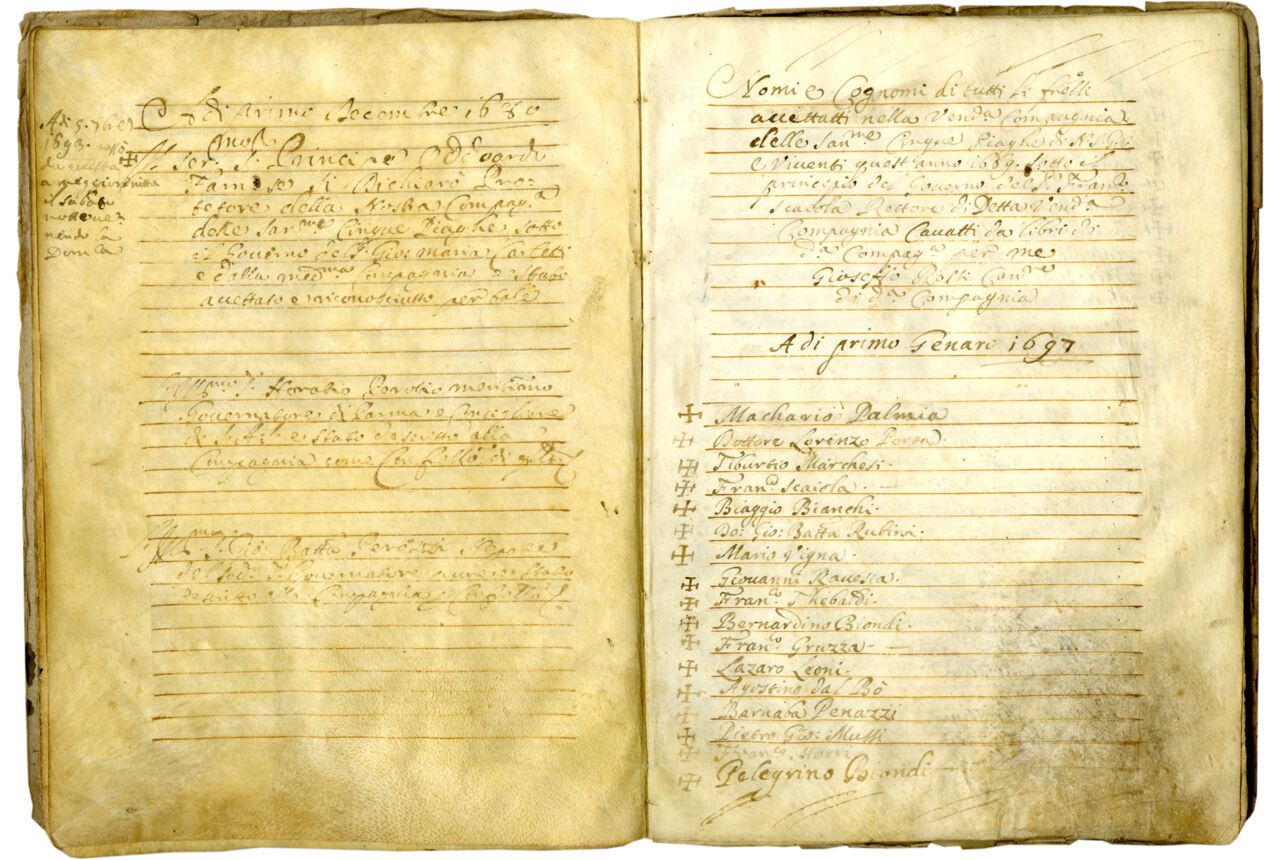 Adi 5. 7bre
1693.
di questa
a meglior vitta
il sabato
notte ve-
nendo la
Dom.ca
Adi Primo Decembre 1680
Il Ser.mo S. Principe Odoardo
Farnese si dichiarò Pro-
tetore della Nostra Compag.a
delle San.me Cinque Piaghe sotto
il Governo del S. Gio: Maria Carletti
e dalla med.ma Compagnia è stato
accettato e riconosciutto per tale
Horatio
Governatore di Parma e Consigliere
di S.A.S. e stato descritto alla
Compagnia come Confr.ello di
Ill.mo S. Gio: Batta Nepote
del sod.o S. Governatore
descritto alla Compagnia
Nomi e Cognomi di tutti li frelli
accettatti nella Vend.a Compagnia
delle San.me Cinque Piaghe di N.S.
e Viventi quest'anno 1689. sotto il
principio del Governo del S. Fran.o
Scaiola Rettore di Detta Vend.a
Compagnia Cavatti da libri di
d.a Compag.a per me
Gioseffo Rosti Can.re
di d.a Compagnia
A di primo Genaro 1697
Machario Palmia
Dottore Lorenzo Porta
Tiburtio Marchesi
Fran.o Scaiola
Biaggio Bianchi
Do: Gio: Batta Rubini
Mario Vigna
Giovanni Ravesta
Fran.o Thebaldi
Bernardino Biondi
Fran.o Gruzza
Lazaro Leoni
Agostino dal Bò
Barnaba Penazzi
Pietro Gio: Mussi
Fran.o Morri
Pelegrino Biondi